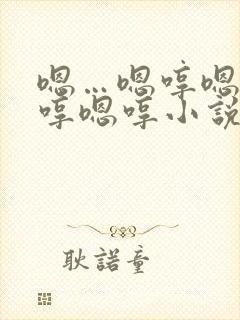 嗯…嗯哼嗯
哼嗯哼小說
耿諾童